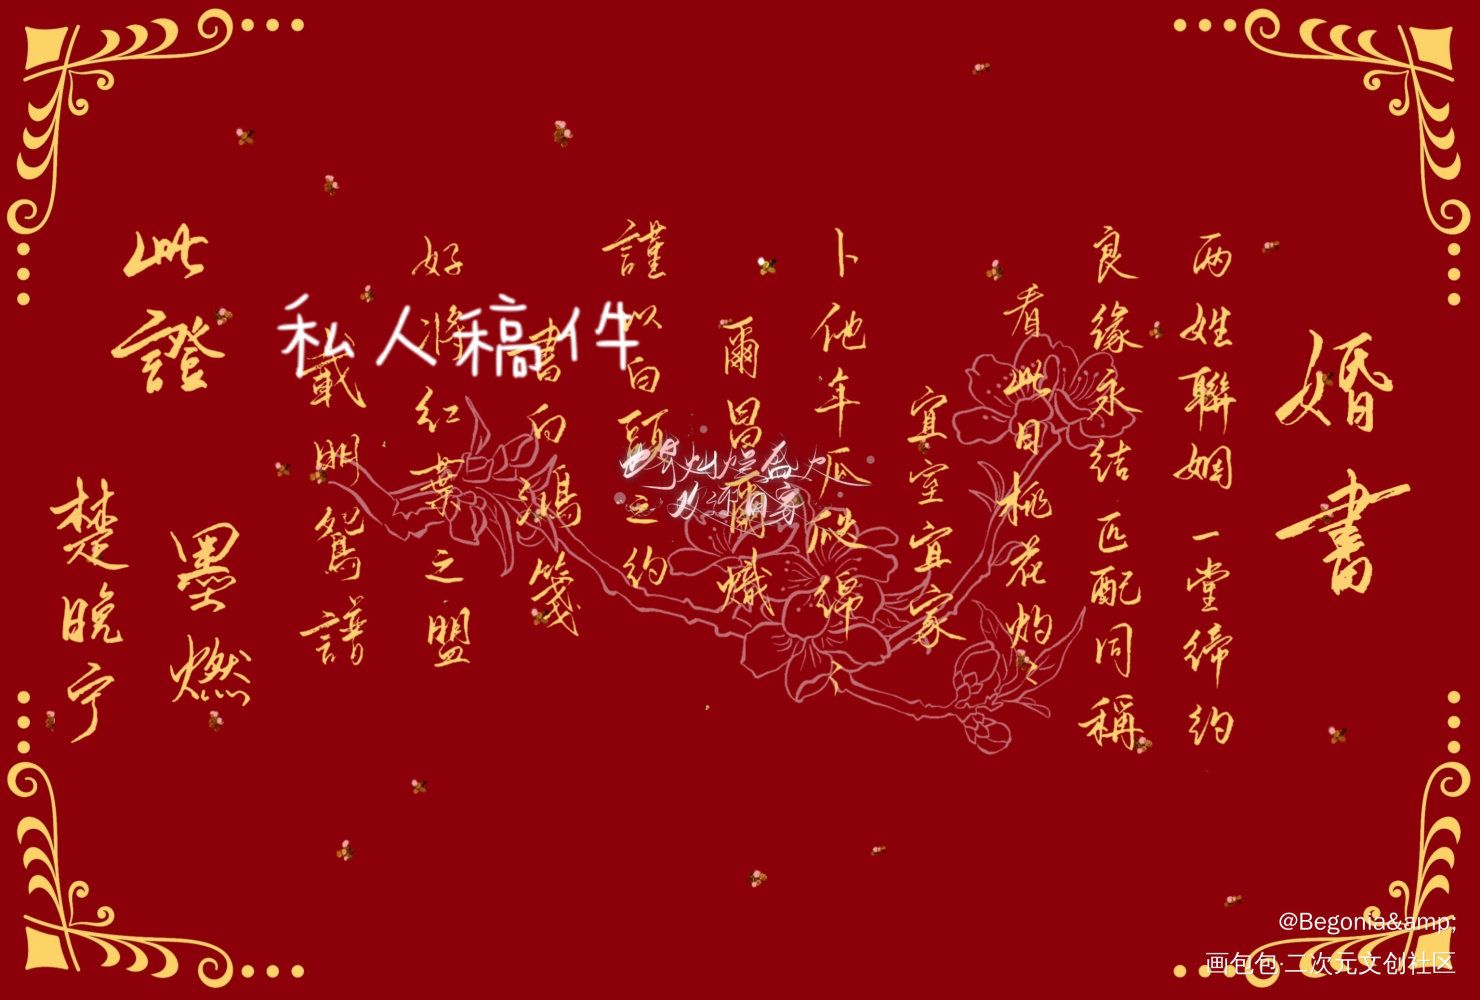 婚書
两姓聯姻 一堂缔约
良缘永结 匹配同稱
看此日桃花灼灼
宜室宜家
卜他年瓜瓞綿綿
爾昌爾熾
謹以白頭之约
書向鴻箋
好将红葉之盟
載明鸳譜
此證
墨燃
楚晚宁
私人稿件
@Begonia&amp;
画包包·二次元文创社区